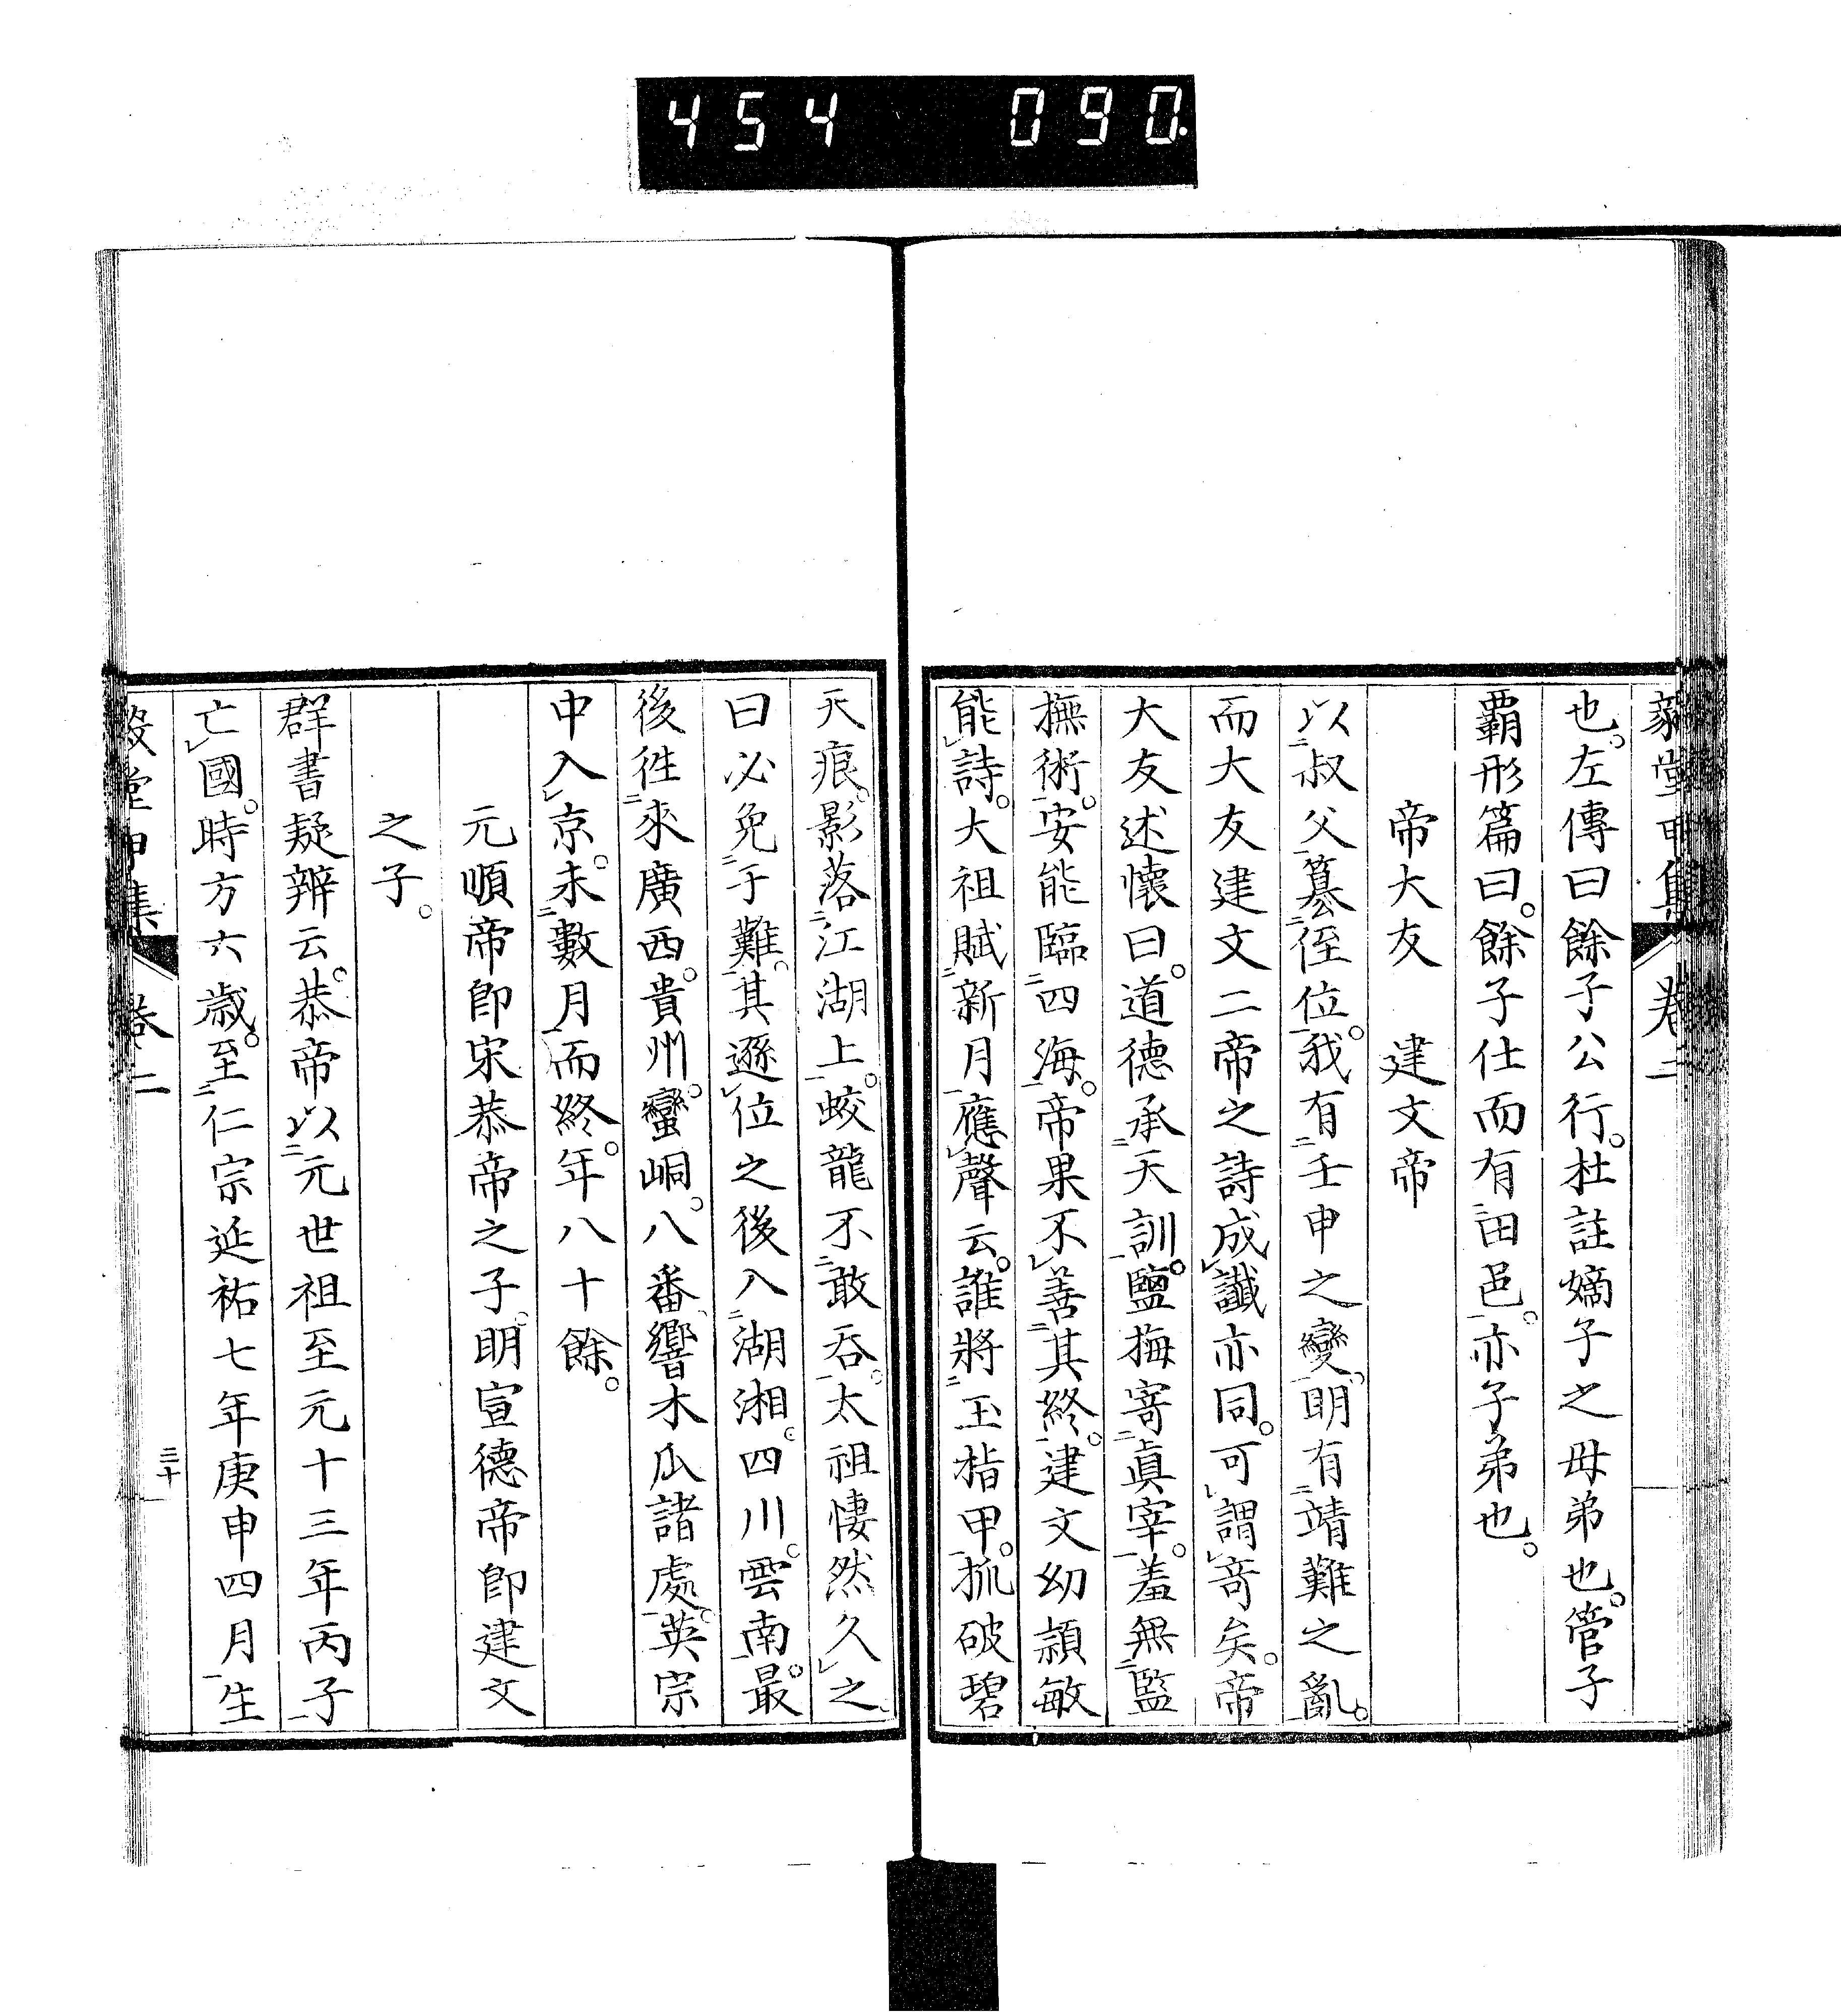 454 090.
也。左傳曰餘子公行。杜註嫡子之母弟也。管子
覇形篇曰。餘子仕而有田邑。亦子弟也。
帝大友 建文帝
以叔父簒侄位。我有壬申之變。明有靖難之亂。
而大友建文二帝之詩成讖亦同。可謂竒矣。帝
大友述懷曰。道德承天訓。鹽梅寄眞宰。羞無監
撫術。安能臨四海。帝果不善其終。建文幼頴敏
能詩。大祖賦新月應聲云。誰將玉指甲。抓破碧
天痕。影落江湖上。蛟龍不敢吞。太祖悽然久之
曰必免于難。其遜位之後入湖湘。四川。雲南。最
後徃來廣西。貴州。蠻峒。八番響木瓜諸處。英宗
中入京。未數月而終。年八十餘。
元順帝即宋恭帝之子。明宣德帝即建文
之子。
群書疑辨云。恭帝以元世祖至元十三年丙子
亡國。時方六歲。至仁宗延祐七年庚申四月生
卷二
三十